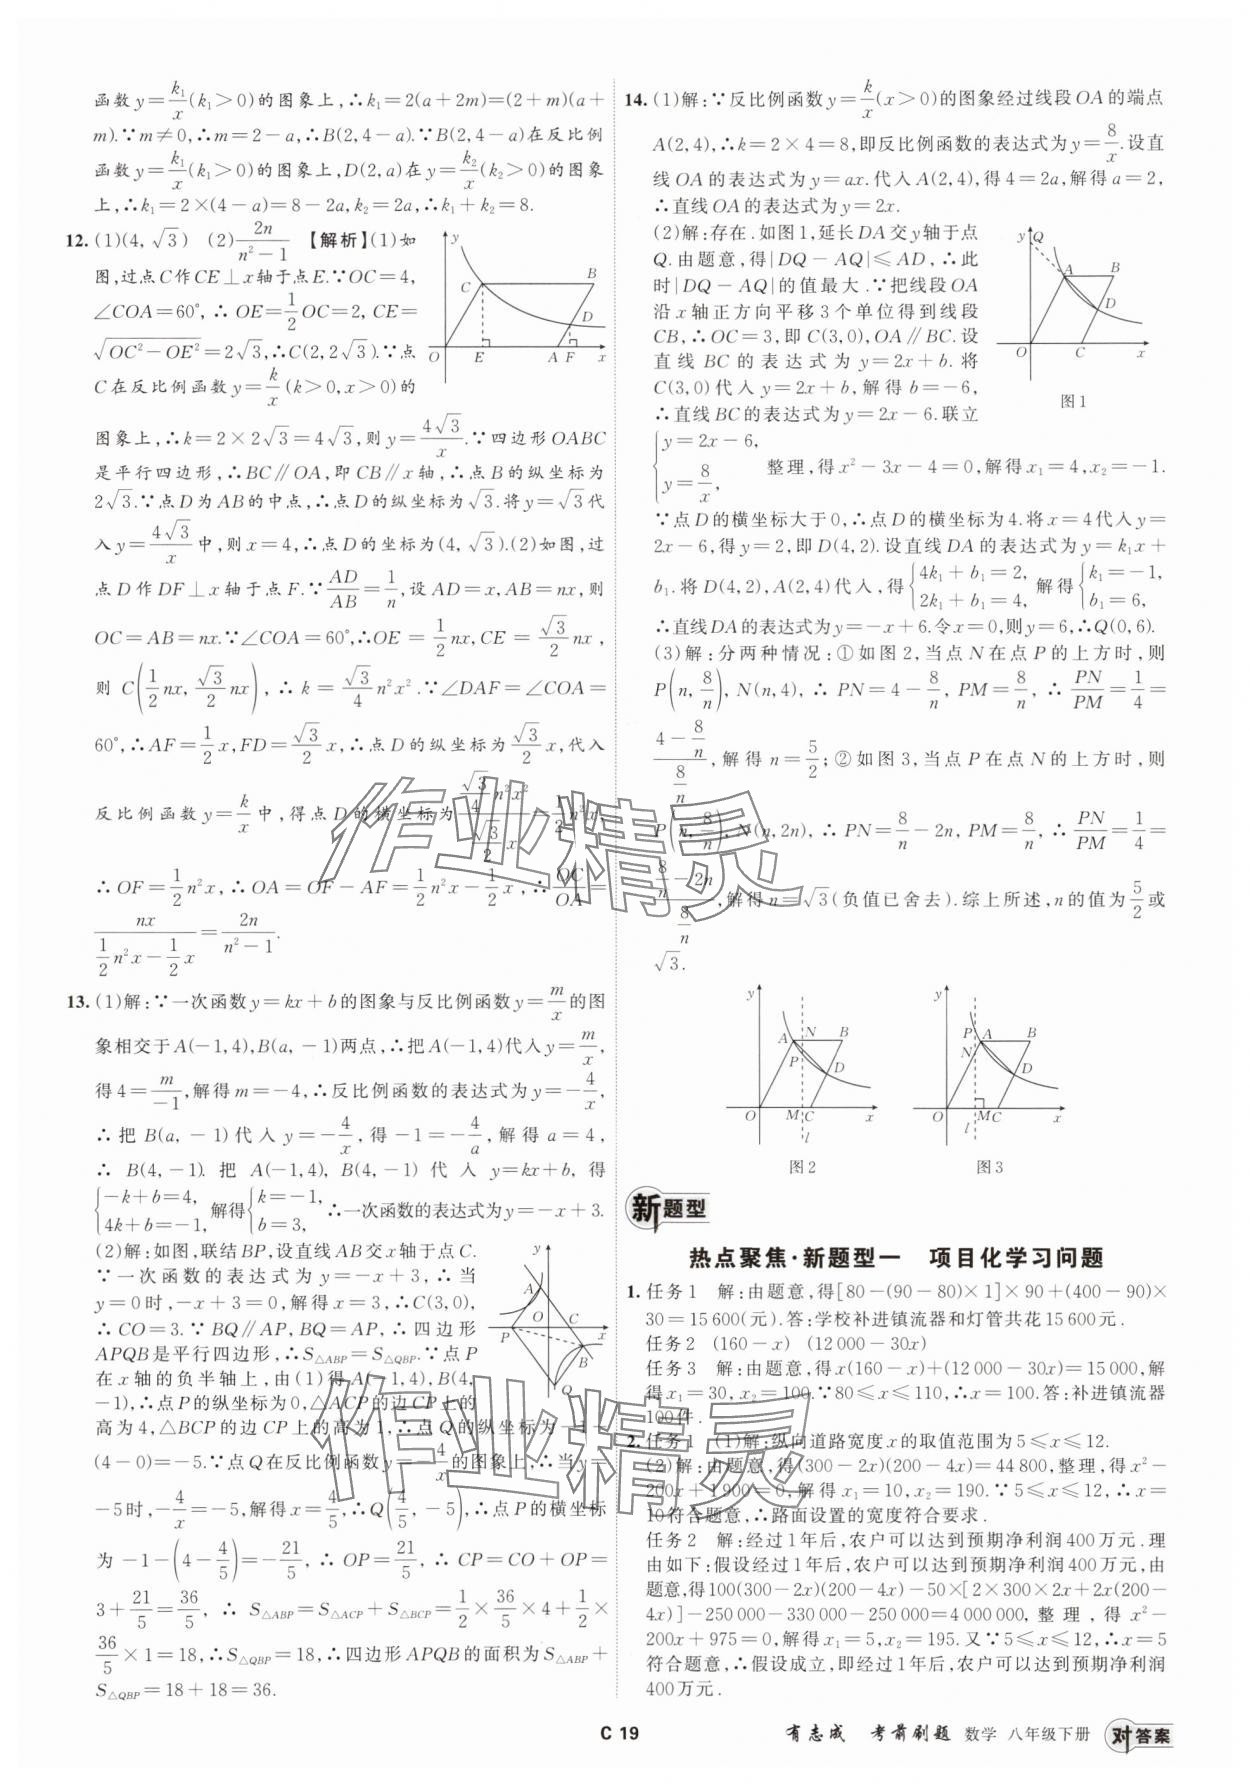 函数y=\frac{k₁}{x}(k₁>0)的图象上,∴k₁=2(a+2m)=(2+m)(a+
m).∵m≠0,∴m=2-a,∴B(2,4-a).∵B(2,4-a)在反比例
函数y=\frac{k₁}{x}(k₁>0)的图象上,D(2,a)在y=\frac{k₂}{x}(k₂>0)的图象
上,∴k₁=2×(4-a)=8-2a,k₂=2a,∴k₁+k₂=8.
12. (1)(4,√3) (2)\frac{2n}{n²-1} 【解析】(1)如
图,过点C作CE⊥x轴于点E.∵OC=4,
∠COA=60°,∴OE=\frac{1}{2}OC=2,CE=
√(OC²-OE²)=2√3,∴C(2,2√3).∵点
C在反比例函数y=\frac{k}{x}(k>0,x>0)的
y C B D O E A F x
图象上,∴k=2×2√3=4√3,则y=\frac{4√3}{x}.∵四边形OABC
是平行四边形,∴BC∥OA,即CB∥x轴,∴点B的纵坐标为
2√3.∵点D为AB的中点,∴点D的纵坐标为√3.将y=√3代
入y=\frac{4√3}{x}中,则x=4,∴点D的坐标为(4,√3).(2)如图,过
点D作DF⊥x轴于点F.∵\frac{AD}{AB}=\frac{1}{n},设AD=x,AB=nx,则
OC=AB=nx.∵∠COA=60°,∴OE=\frac{1}{2}nx,CE=\frac{√3}{2}nx,
则C(\frac{1}{2}nx,\frac{√3}{2}nx),∴k=\frac{√3}{4}n²x².∵∠DAF=∠COA=
60°,∴AF=\frac{1}{2}x,FD=\frac{√3}{2}x,∴点D的纵坐标为\frac{√3}{2}x,代入
反比例函数y=\frac{k}{x}中,得点D的横坐标为\frac{\frac{√3}{4}n²x²}{\frac{√3}{2}x}=\frac{1}{2}n²x,
∴OF=\frac{1}{2}n²x,∴OA=OF-AF=\frac{1}{2}n²x-\frac{1}{2}x,∴\frac{OC}{OA}=
\frac{nx}{\frac{1}{2}n²x-\frac{1}{2}x}=\frac{2n}{n²-1}.
13. (1)解:∵一次函数y=kx+b的图象与反比例函数y=\frac{m}{x}的图
象相交于A(-1,4),B(a,-1)两点,∴把A(-1,4)代入y=\frac{m}{x},
得4=\frac{m}{-1},解得m=-4,∴反比例函数的表达式为y=-\frac{4}{x},
∴把B(a,-1)代入y=-\frac{4}{x},得-1=-\frac{4}{a},解得a=4,
∴B(4,-1).把A(-1,4),B(4,-1)代入y=kx+b,得
{-k+b=4, 4k+b=-1, 解得{k=-1, b=3, ∴一次函数的表达式为y=-x+3.
(2)解:如图,联结BP,设直线AB交x轴于点C.
∵一次函数的表达式为y=-x+3,∴当
y=0时,-x+3=0,解得x=3,∴C(3,0),
∴CO=3.∵BQ∥AP,BQ=AP,∴四边形
APQB是平行四边形,∴S△ABP=S△QBP.∵点P
在x轴的负半轴上,由(1)得A(-1,4),B(4,
-1),∴点P的纵坐标为0,△ACP的边CP上的
y A O C P x B Q
高为4,△BCP的边CP上的高为1,∴点Q的纵坐标为-1-
(4-0)=-5.∵点Q在反比例函数y=-\frac{4}{x}的图象上,∴当y=
-5时,-\frac{4}{x}=-5,解得x=\frac{4}{5},∴Q(\frac{4}{5},-5),∴点P的横坐标
为-1-(4-\frac{4}{5})=-\frac{21}{5},∴OP=\frac{21}{5},∴CP=CO+OP=
3+\frac{21}{5}=\frac{36}{5},∴S△ABP=S△ACP+S△BCP=\frac{1}{2}×\frac{36}{5}×4+\frac{1}{2}×
\frac{36}{5}×1=18,∴S△QBP=18,∴四边形APQB的面积为S△ABP+
S△QBP=18+18=36.
14. (1)解:∵反比例函数y=\frac{k}{x}(x>0)的图象经过线段OA的端点
A(2,4),∴k=2×4=8,即反比例函数的表达式为y=\frac{8}{x}.设直
线OA的表达式为y=ax.代入A(2,4),得4=2a,解得a=2,
∴直线OA的表达式为y=2x.
(2)解:存在.如图1,延长DA交y轴于点
Q.由题意,得|DQ-AQ|≤AD,∴此
时|DQ-AQ|的值最大.∵把线段OA
沿x轴正方向平移3个单位得到线段
CB,∴OC=3,即C(3,0),OA∥BC.设
直线BC的表达式为y=2x+b.将
C(3,0)代入y=2x+b,解得b=-6,
∴直线BC的表达式为y=2x-6.联立
y Q A B D O C x
图1
{y=2x-6, y=\frac{8}{x}, 整理,得x²-3x-4=0,解得x₁=4,x₂=-1.
∵点D的横坐标大于0,∴点D的横坐标为4.将x=4代入y=
2x-6,得y=2,即D(4,2).设直线DA的表达式为y=k₁x+
b₁.将D(4,2),A(2,4)代入,得{4k₁+b₁=2, 2k₁+b₁=4, 解得{k₁=-1, b₁=6,
∴直线DA的表达式为y=-x+6.令x=0,则y=6,∴Q(0,6).
(3)解:分两种情况:①如图2,当点N在点P的上方时,则
P(n,\frac{8}{n}),N(n,4),∴PN=4-\frac{8}{n},PM=\frac{8}{n},∴\frac{PN}{PM}=\frac{1}{4}=
\frac{4-\frac{8}{n}}{\frac{8}{n}},解得n=\frac{5}{2};②如图3,当点P在点N的上方时,则
P(n,\frac{8}{n}),N(n,2n),∴PN=\frac{8}{n}-2n,PM=\frac{8}{n},∴\frac{PN}{PM}=\frac{1}{4}=
\frac{\frac{8}{n}-2n}{\frac{8}{n}},解得n=√3(负值已舍去).综上所述,n的值为\frac{5}{2}或
√3.
y A N B P D O M C x l
图2
y P A B N D O M C x l
图3
新题型
热点聚焦·新题型一 项目化学习问题
1. 任务1 解:由题意,得[80-(90-80)×1]×90+(400-90)×
30=15 600(元).答:学校补进镇流器和灯管共花15 600元.
任务2 (160-x) (12 000-30x)
任务3 解:由题意,得x(160-x)+(12 000-30x)=15 000,解
得x₁=30,x₂=100.∵80≤x≤110,∴x=100.答:补进镇流器
100件.
2. 任务1 (1)解:纵向道路宽度x的取值范围为5≤x≤12.
(2)解:由题意,得(300-2x)(200-4x)=44 800,整理,得x²-
200x+1 900=0,解得x₁=10,x₂=190.∵5≤x≤12,∴x=
10符合题意,∴路面设置的宽度符合要求.
任务2 解:经过1年后,农户可以达到预期净利润400万元.理
由如下:假设经过1年后,农户可以达到预期净利润400万元,由
题意,得100(300-2x)(200-4x)-50×[2×300×2x+2x(200-
4x)]-250 000-330 000-250 000=4 000 000,整理,得x²-
200x+975=0,解得x₁=5,x₂=195.又∵5≤x≤12,∴x=5
符合题意,∴假设成立,即经过1年后,农户可以达到预期净利润
400万元.
作业精灵
作业精灵
C 19
有志成 考前刷题 数学 八年级下册 对答案